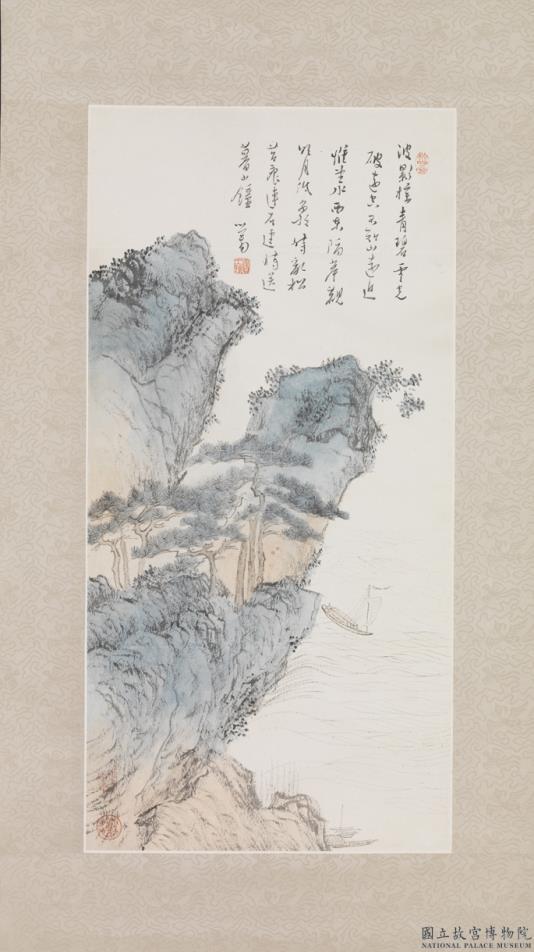 波影搖青碧雲光
破遠空不知山遠近
惟水西東隔岸觀
明月松
苔痕連石時送
暮山鐘 心畬
國立故宮博物院
NATIONAL PALACE MUSEUM